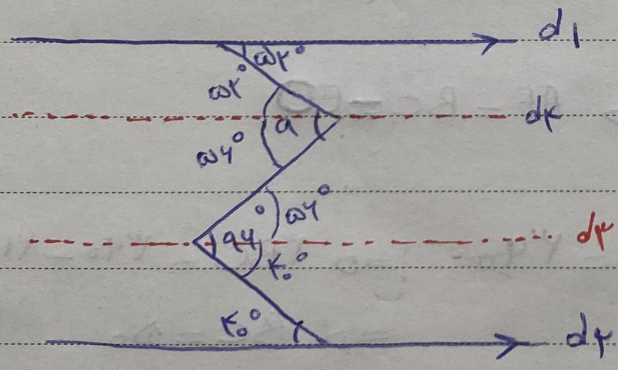 d۱
۵۲°
۵۲°
a
d۲
۵۶°
۵۶°
۹۶°
d۳
۴۰°
۴۰°
d۴